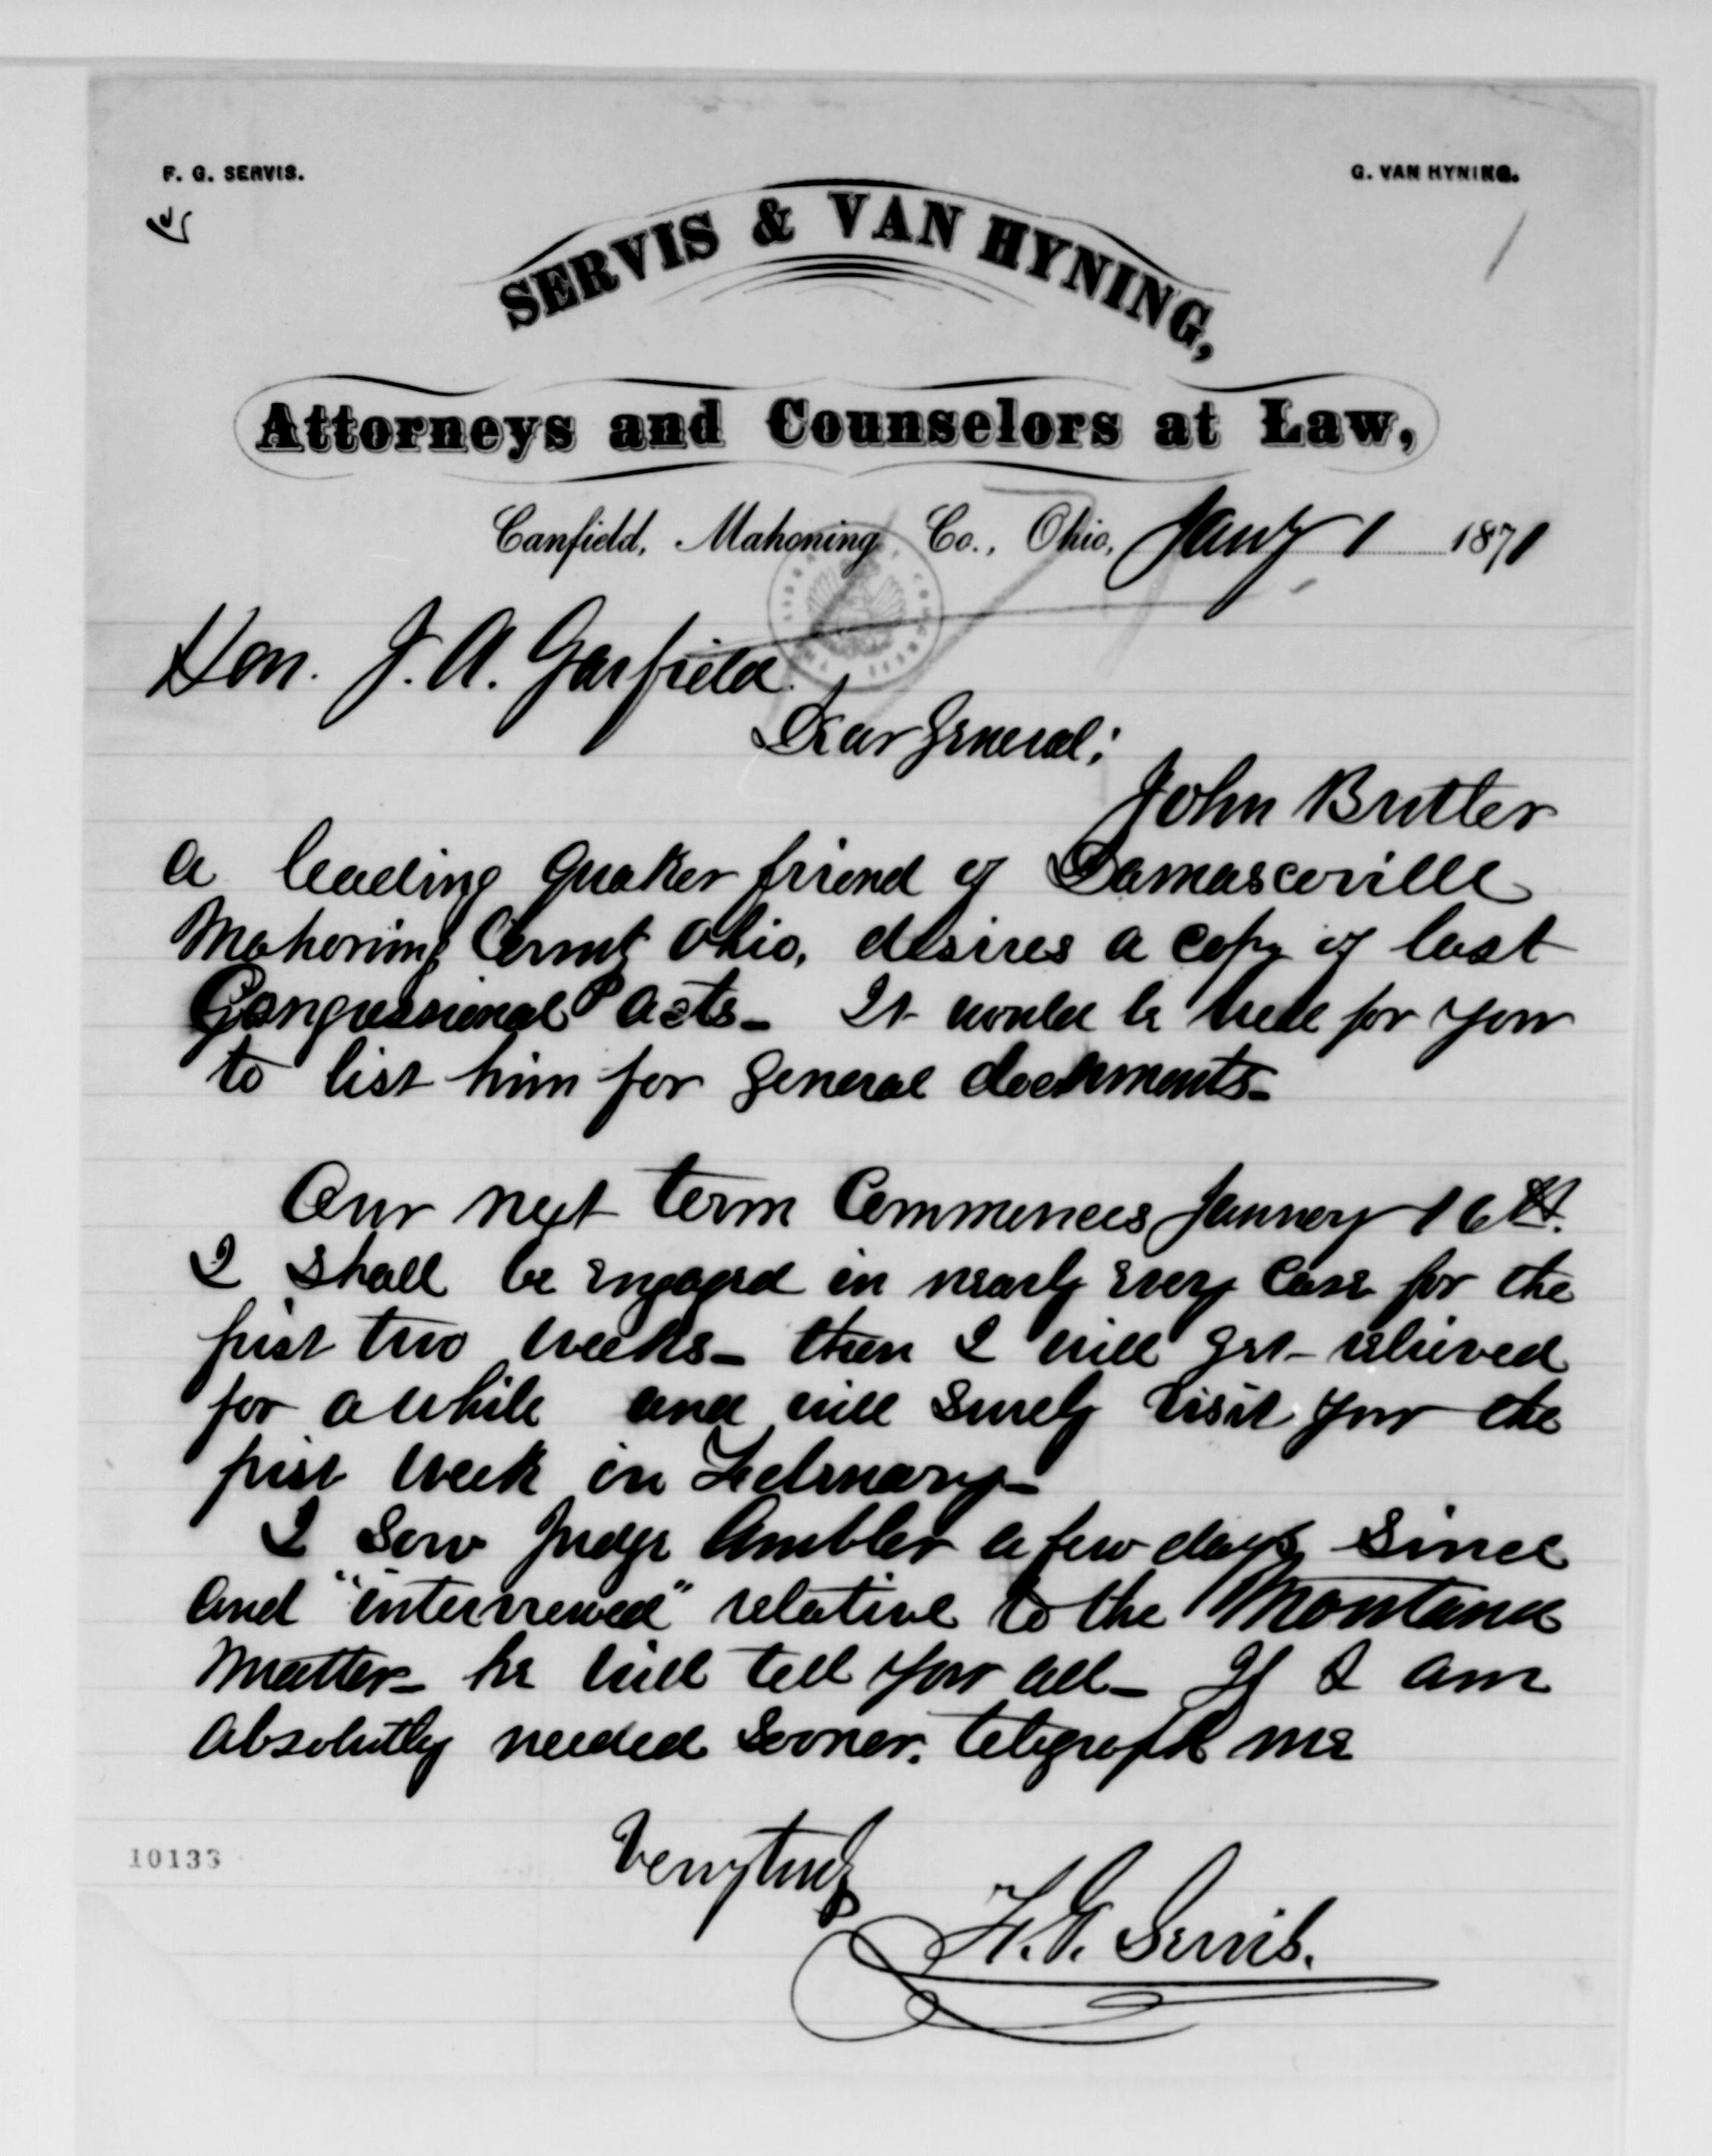 F. G. SERVIS.
G. VAN HYNING.
SERVIS & VAN HYNING,
Attorneys and Counselors at Law,
Canfield, Mahoning Co., Ohio, Jany 1 1871
Hon. J. A. Garfield
Dear General:
John Butler
a leading Quaker friend of Damascoville
Mahoning County Ohio, desires a copy of last
Congressional acts- It would be well for you
to list him for general documents-
Our next term Commences January 16th.
I shall be engaged in nearly every case for the
first two weeks- then I will get relieved
for a while and will surely visit you the
first week in February-
I saw Judge Ambler a few days since
and "interviewed" relative to the Montana
matter- he will tell you all- If I am
absolutely needed sooner, telegraph me
Very truly
F. G. Servis.
10133